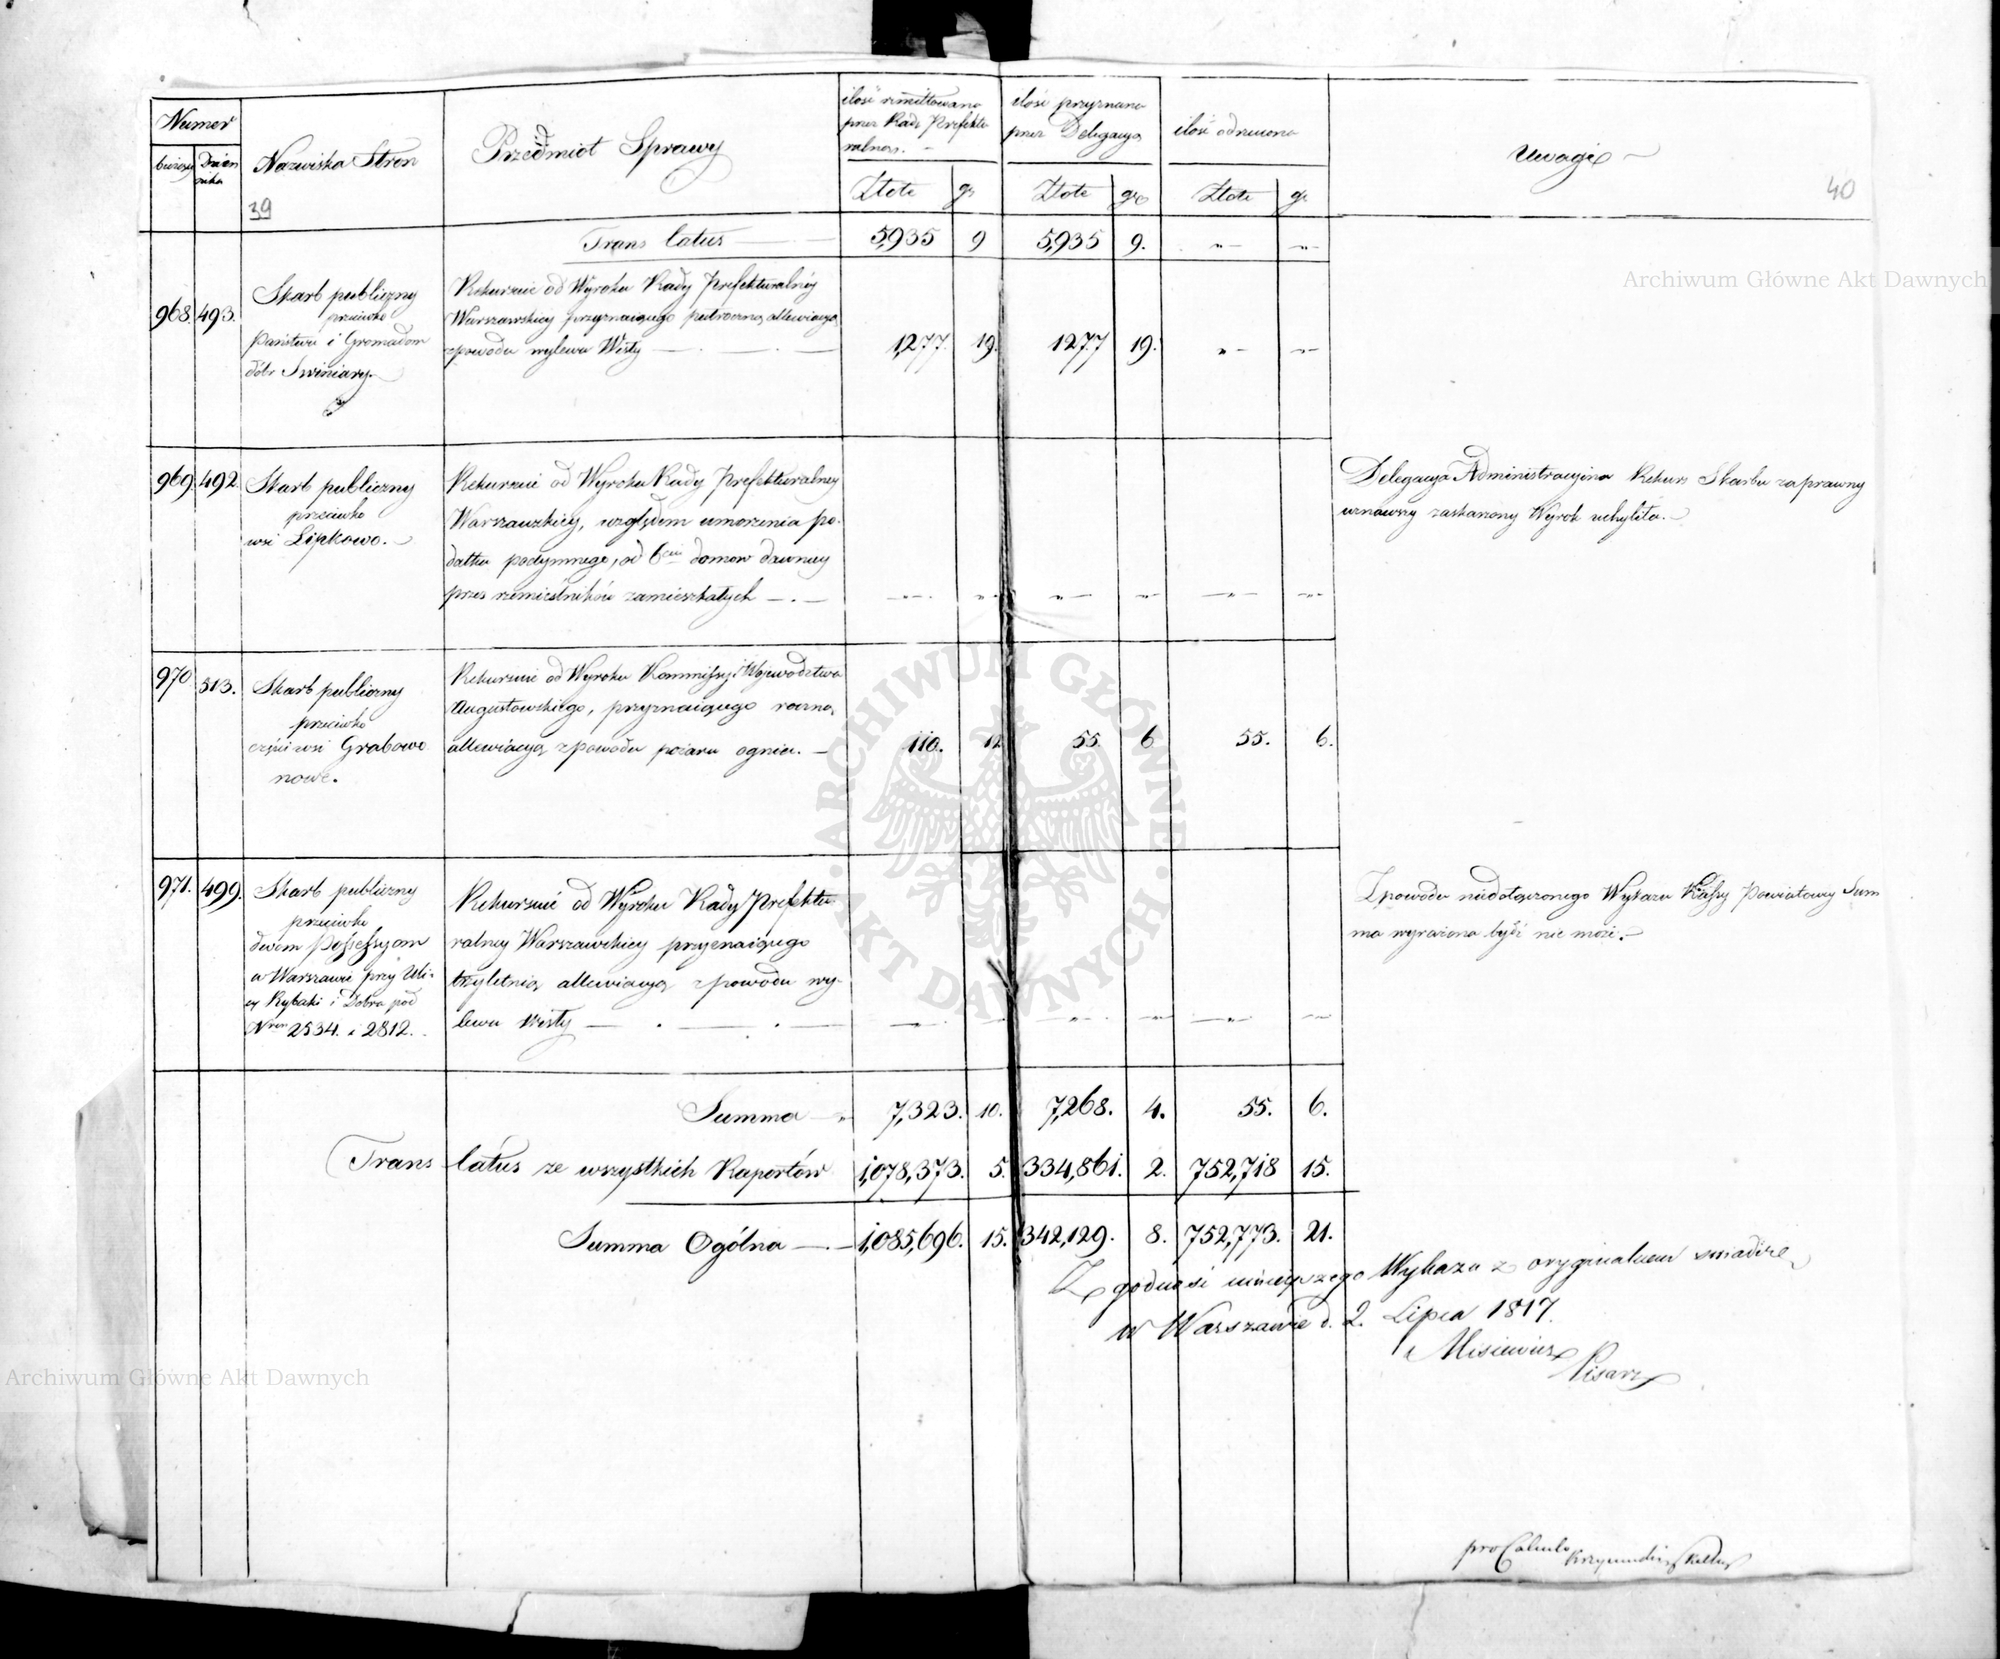 Numer
bieżący
Dzien
nika
Nazwiska Stron
Przedmiot Sprawy
ilość remittowana
przez Radę Prefektu
ralną.
ilość przyznana
przez Delegacyą
ilość odrzucona
Uwagi
Złote gr
Złote gr
Złote gr
39
40
Trans latus 5,935 9 5,935 9. " "
968. 493.
Skarb publiczny
przeciwko
Państwu i Gromadom
dóbr Swiniary.
Rekursie od Wyroku Rady Prefekturalnéy
Warszawskiey przyznaiącego półroczną allewiacyą
z powodu wylewu Wisły
1,277. 19. 1277 19. " "
969. 492
Skarb publiczny
przeciwko
wsi Lipkowo.
Rekursie od Wyroku Rady Prefekturalney
Warszawskiey, względem umorzenia po-
datku podymnego, od 6ciu domow dawniey
przez rzemieślników zamieszkałych
Delegacya Administracyina Rekurs Skarbu za prawny
uznawszy zaskarzony Wyrok uchyliła.
970 513.
Skarb publiczny
przeciwko
części wsi Grabowo
nowe.
Rekursie od Wyroku Kommissyi Woiewodztwa
Augustowskiego, przyznaiącego roczną
allewiacyą z powodu pożaru ognia.
110. 12 55 6 55. 6.
971. 499.
Skarb publiczny
przeciwko
dwom Possessyom
w Warszawie przy Uli-
cy Rybaki i Dobra pod
Nrem 2534. i 2812.
Rekursie od Wyroku Rady Prefektu
ralney Warszawskiey przyznaiącego
trzyletnią allewiacyą z powodu wy-
lewu Wisły
Z powodu niedołączonego Wykazu Kassy Powiatowey Sum
ma wyrażona bydź nie może.
Summa 7,323. 10. 7,268. 4. 55. 6.
Trans latus ze wszystkich Raportów 1,078,373. 5. 334,861. 2. 752,718 15.
Summa Ogólna 1,085,696. 15. 342,129. 8. 752,773. 21.
Zgodność ninieyszego Wykazu z oryginałem swiadczę
w Warszawie d. 2. Lipca 1817.
Misiewicz
Pisarz
pro Calculo
Archiwum Główne Akt Dawnych
Archiwum Główne Akt Dawnych
ARCHIWUM GŁÓWNE AKT DAWNYCH